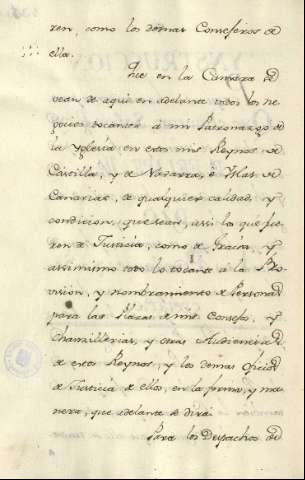 ren, como los demas Consejeros de
ella.
Que en la Camara se
vean de aqui en adelante todos los ne
gocios tocantes a mi Patronazgo de
la Yglesia en estos mis Reynos de
Castilla, y de Navarra, é Yslas de
Canarias, de qualquier calidad, y
condicion, que sean, assi lo que fue
ren de Justicia, como de Gracia, y
assimismo todo lo tocante à la Pro
vision, y nombramiento de Personas
para las Plazas de mis Consejos, y
Chancillerias, y otras Audiencias
de estos Reynos, y los demas oficios
de Justicia de ellos, en la forma, y ma
nera, que adelante se dirá.
Para los Despachos de